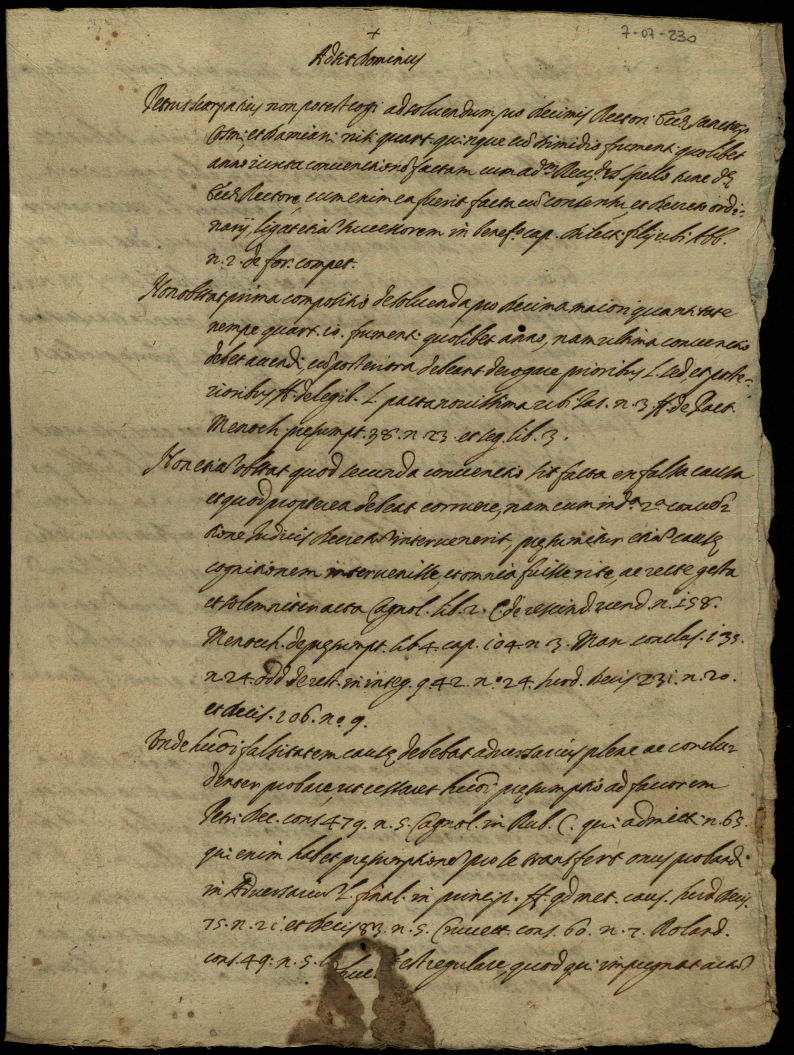 7-07-230
+
Adsit Dominus
Petrus scarpatius non potest cogi ad solvendum pro decimis Rectori Eccl. Sanctor.
Cosmi et Damiani nisi quart. quinque cū dimidio frument. quolibet
anno iuxta conventionē factam cum ad. Rev. Spello tunc d.
Eccl. Rectore, cum enim ea fuerit facta cū consensu, et decreto ordi-
narij, ligat etiā successorem in benef. cap. dilect. filij ubi Abb.
n. 2. de for. compet.
Non obstat prima compositio de solvenda pro decima maiori quantitate
nempe quart. 10. frument. quolibet anno, nam ultima conventio
debet attendi, cū posteriora debeant derogare prioribus L. sed et poste-
rioribus ff. de legib. L. pacta novissima ubi Ias. n. 3 ff. de Pact.
Menoch. presumpt. 38. n. 23. et seq. lib. 3.
Non etiā obstat quod secunda conventio sit facta ex falsa causa
et quod propterea debeat corruere, nam cum in d.ª 2ª conven
tione Iudicis decretū intervenerit, pręsumitur etiā causę
cognitionem intervenisse, et omnia fuisse rite, ac recte gesta
et solemniter acta Cagnol. lib. 2. C. de rescind. vend. n. 158.
Menoch. de pręsumpt. lib 4. cap. 104. n. 3. Man. conclus. 135.
n. 24. Odd. de rest. in integ. q. 42. n.º 24. surd. decis. 231. n. 20.
et decis. 206. nº. 9.
Unde huiōi falsitatem causę debebat adversarius plene ac conclu
denter probare ut cessaret huiōi pręsumptio ad favorem
Petri Dec. cons. 479. n. 5. Cagnol. in Rub. C. qui admitt. n. 65.
qui enim habet pręsumptionē pro se transfert onus probandi
in Adversariū L. final. in princip. ff. qd met. caus. surd. decis.
75. n. 21. et decis. 83. n. 5. Cravett. cons. 60. n. 7. Roland.
cons. 49. n. 5. est regulare, quod qui impugnat actū